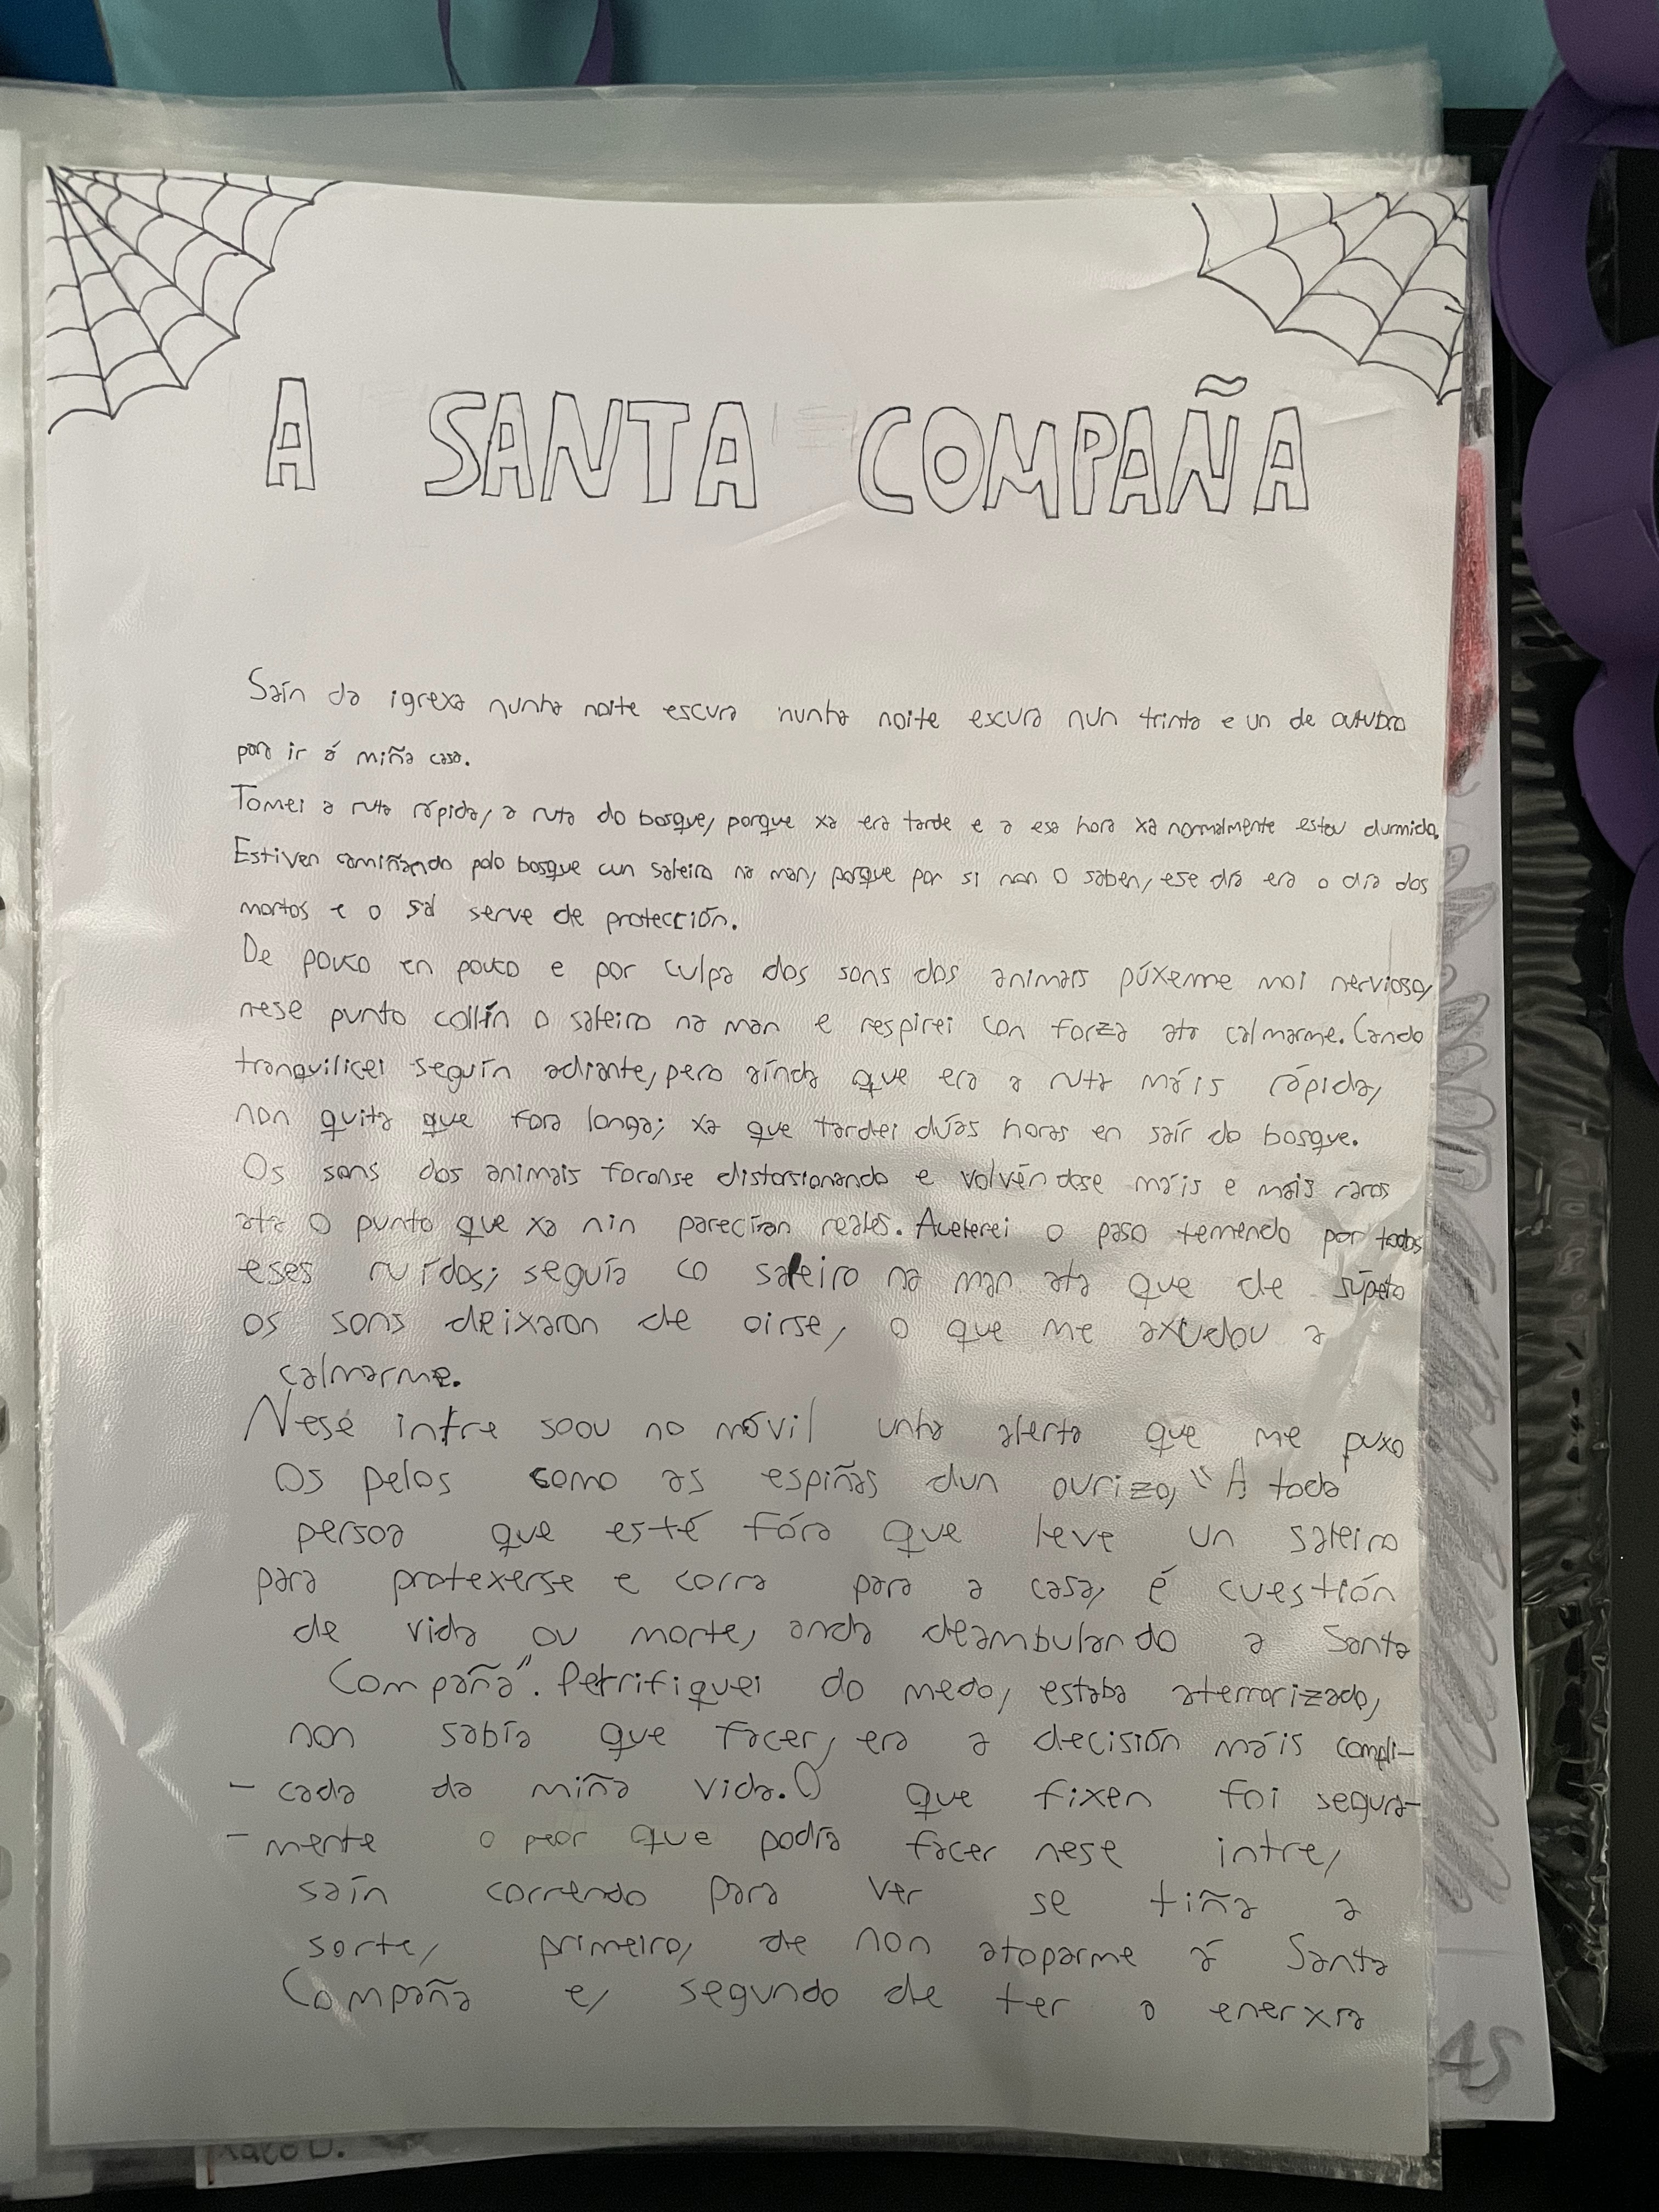 A SANTA COMPAÑA
Saín da igrexa nunha noite escura nunha noite escura nun trinta e un de outubro
para ir á miña casa.
Tomei a ruta rápida, a ruta do bosque, porque xa era tarde e a esa hora xa normalmente estou durmida.
Estiven camiñando polo bosque cun saleiro na man, porque por si non o saben, ese día era o día dos
mortos e o sal serve de protección.
De pouco en pouco e por culpa dos sons dos animais púxenme moi nervioso,
nese punto collín o saleiro na man e respirei con forza ata calmarme. Cando
tranquilicei seguín adiante, pero aínda que era a ruta máis rápida,
non quita que fora longa; xa que tardei dúas horas en saír do bosque.
Os sons dos animais foronse distorsionando e volvéndose máis e máis raros
ata o punto que xa nin parecían reales. Acelerei o paso temendo por todos
eses ruídos; seguía co saleiro na man ata que de súpeto
os sons deixaron de oirse, o que me axudou a
calmarme.
Nese intre soou no móvil unha alerta que me puxo
Os pelos como as espiñas dun ourizo, "A toda
persoa que esté fóra que leve un saleiro
para protexerse e corra para a casa, é cuestión
de vida ou morte, anda deambulando a Santa
Compaña". Petrifiquei do medo, estaba aterrorizado,
non sabía que facer, era a decisión máis compli-
-cada da miña vida. O que fixen foi segura-
-mente o peor que podía facer nese intre,
saín correndo para ver se tiña a
sorte, primeiro, de non atoparme á Santa
Compaña e, segundo de ter a enerxía
AS